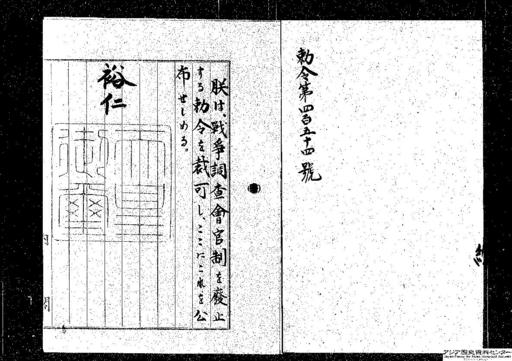 勅令第四百五十四號
朕は、戰爭調査會官制を廢止
する勅令を裁可し、ここにこれを公
布せしめる。
裕仁
天皇
御璽
内閣
アジア歴史資料センター